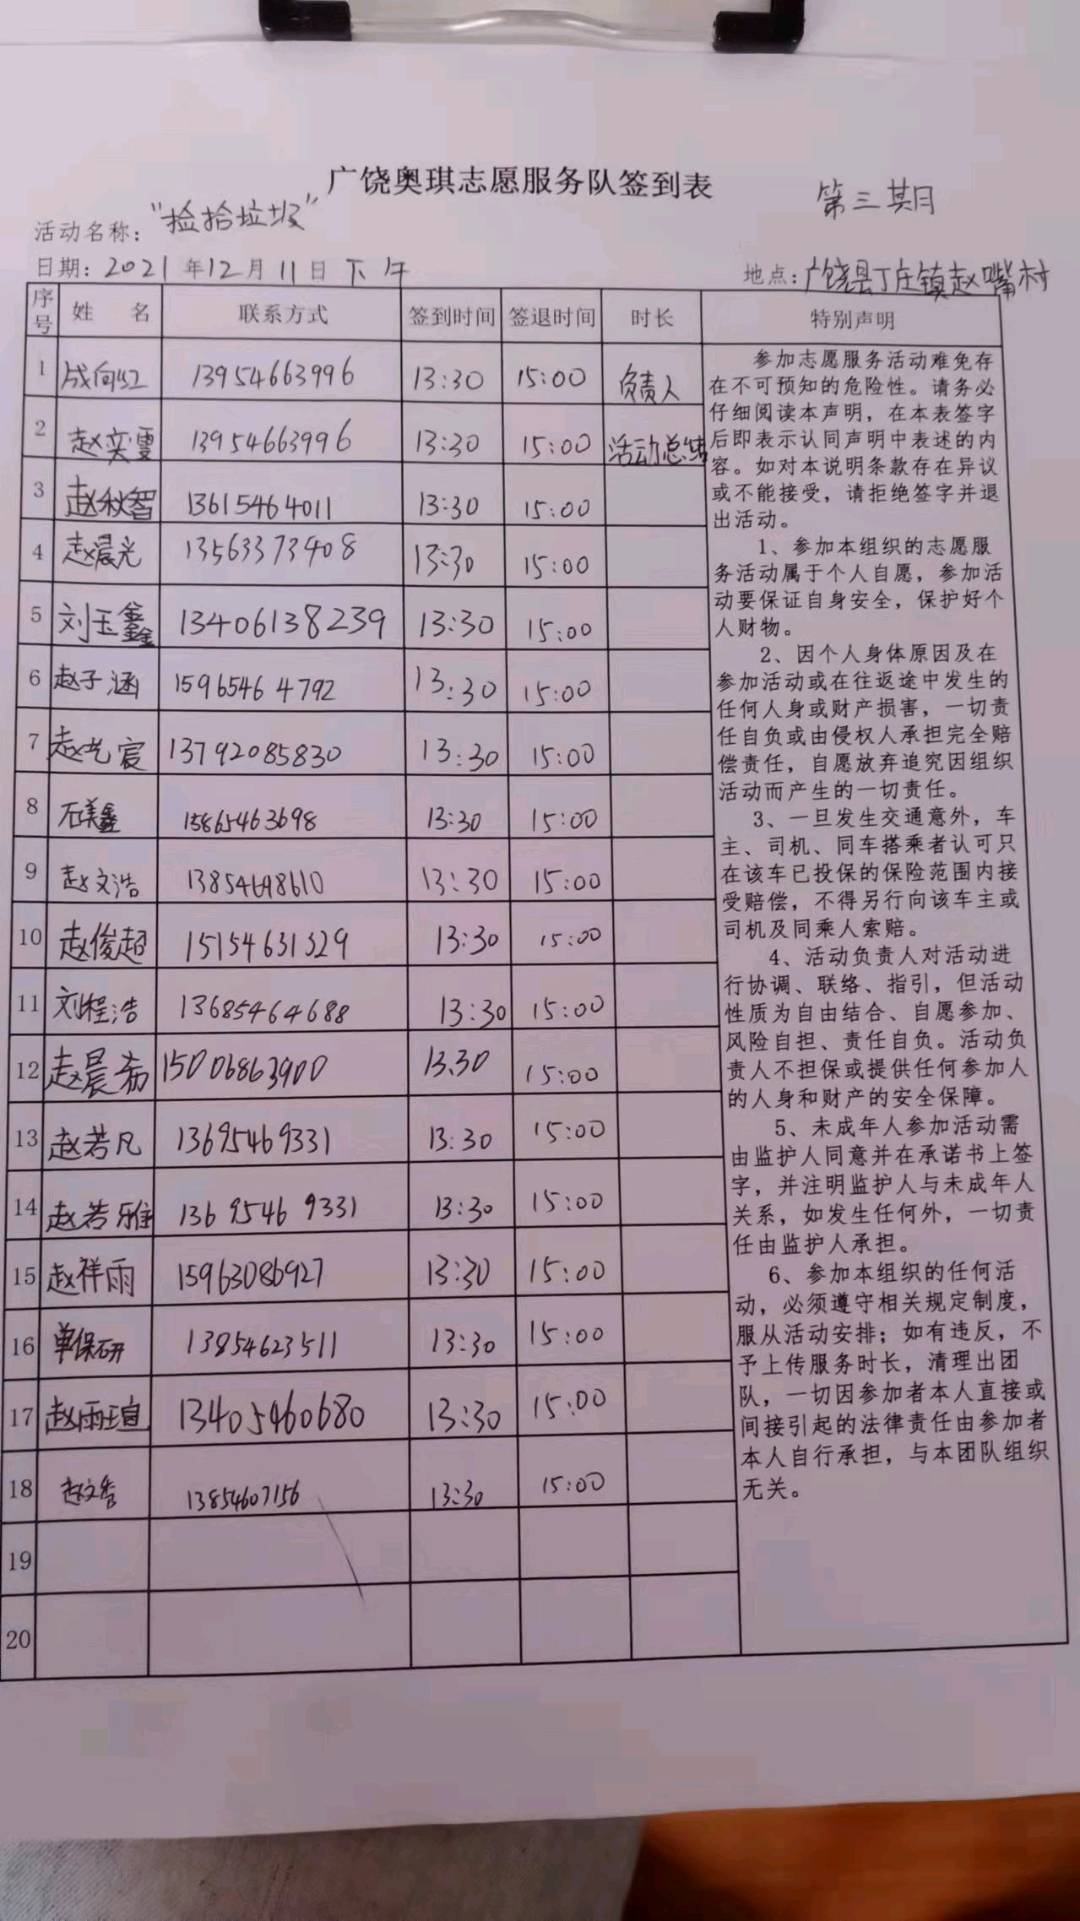 广饶奥琪志愿服务队签到表
第三期
活动名称："捡拾垃圾"
日期：2021年12月11日下午
地点：广饶县丁庄镇赵嘴村
序号 姓 名 联系方式 签到时间 签退时间 时长 特别声明
1 成向红 13954663996 13:30 15:00 负责人
2 赵奕雯 13954663996 13:30 15:00 活动总结
3 赵秋智 13615464011 13:30 15:00
4 赵晨光 13563373408 13:30 15:00
5 刘玉鑫 13406138239 13:30 15:00
6 赵子涵 15965464792 13:30 15:00
7 赵艺宸 13792085830 13:30 15:00
8 石美鑫 15865463698 13:30 15:00
9 赵文浩 13:30 15:00
10 赵俊超 15154631329 13:30 15:00
11 刘程浩 13685464688 13:30 15:00
12 赵晨希 15006863900 13:30 15:00
13 赵若凡 13695469331 13:30 15:00
14 赵若雅 13695469331 13:30 15:00
15 赵祥雨 15963086927 13:30 15:00
16 单保研 13854623511 13:30 15:00
17 赵雨瑄 13405460680 13:30 15:00
18 13854607156 13:30 15:00
19
20
参加志愿服务活动难免存
在不可预知的危险性。请务必
仔细阅读本声明，在本表签字
后即表示认同声明中表述的内
容。如对本说明条款存在异议
或不能接受，请拒绝签字并退
出活动。
1、参加本组织的志愿服
务活动属于个人自愿，参加活
动要保证自身安全，保护好个
人财物。
2、因个人身体原因及在
参加活动或在往返途中发生的
任何人身或财产损害，一切责
任自负或由侵权人承担完全赔
偿责任，自愿放弃追究因组织
活动而产生的一切责任。
3、一旦发生交通意外，车
主、司机、同车搭乘者认可只
在该车已投保的保险范围内接
受赔偿，不得另行向该车主或
司机及同乘人索赔。
4、活动负责人对活动进
行协调、联络、指引，但活动
性质为自由结合、自愿参加、
风险自担、责任自负。活动负
责人不担保或提供任何参加人
的人身和财产的安全保障。
5、未成年人参加活动需
由监护人同意并在承诺书上签
字，并注明监护人与未成年人
关系，如发生任何外，一切责
任由监护人承担。
6、参加本组织的任何活
动，必须遵守相关规定制度，
服从活动安排；如有违反，不
予上传服务时长，清理出团
队，一切因参加者本人直接或
间接引起的法律责任由参加者
本人自行承担，与本团队组织
无关。